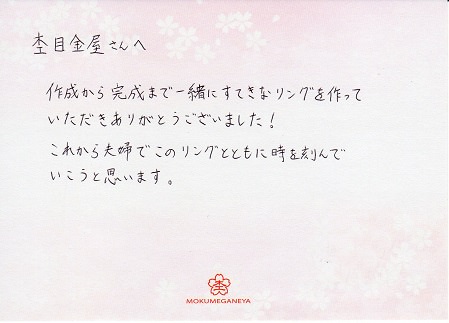 杢目金屋さんへ
作成から完成まで一緒にすてきなリングを作って
いただきありがとうございました!
これから夫婦でこのリングとともに時を刻んで
いこうと思います。
杢
MOKUMEGANEYA